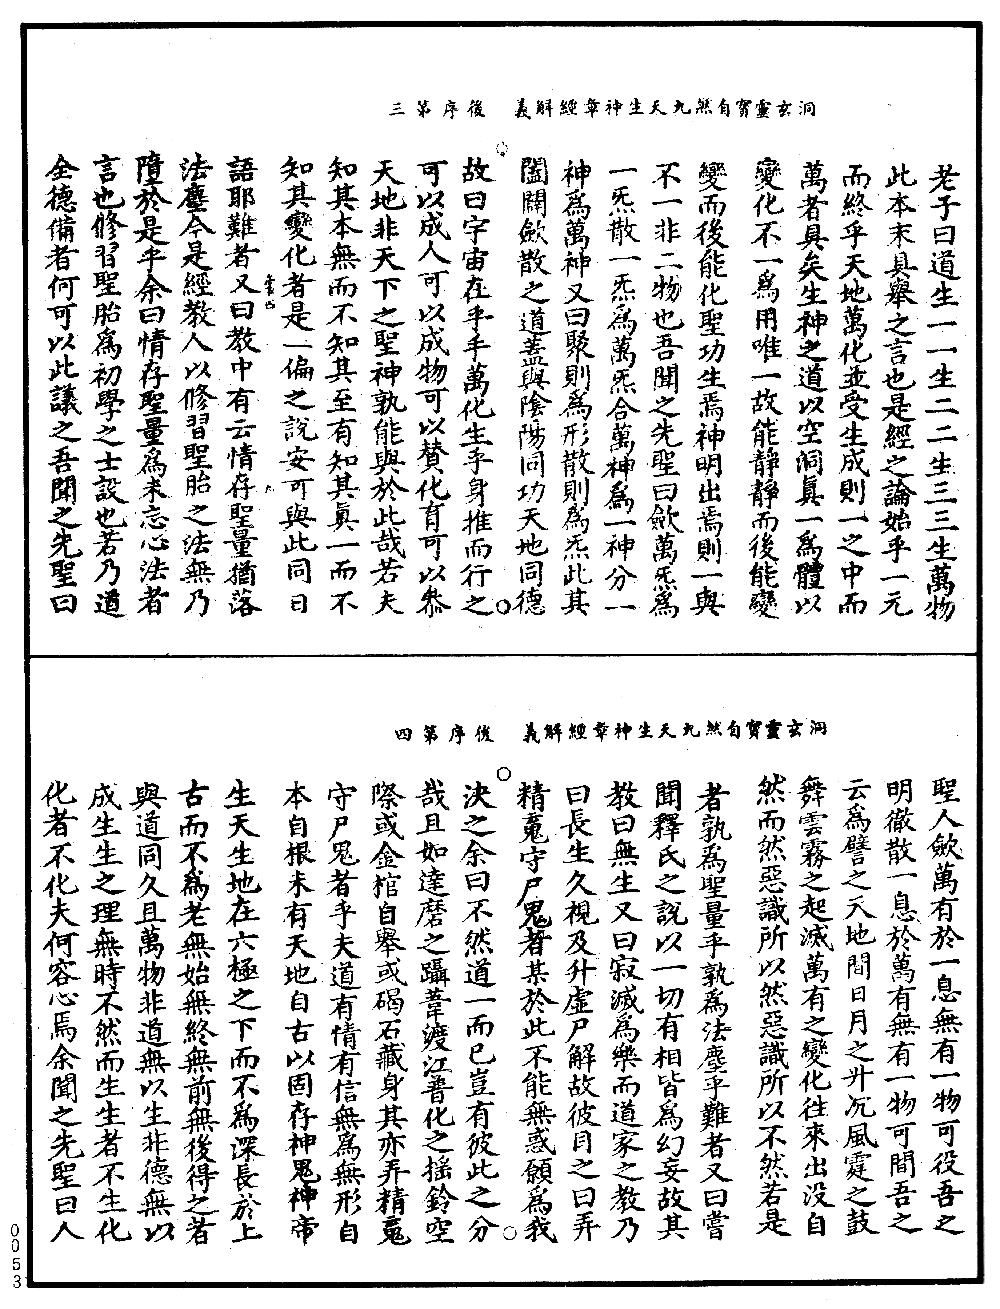 洞玄靈寶自然九天生神章經解義　後序第三
老子曰道生一一生二二生三三生萬物
此本末具舉之言也是經之論始乎一元
而終乎天地萬化並受生成則一之中而
萬者具矣生神之道以空洞眞一爲體以
變化不一爲用唯一故能靜靜而後能變
變而後能化聖功生焉神明出焉則一與
不一非二物也吾聞之先聖曰歛萬炁爲
一炁散一炁爲萬炁合萬神爲一神分一
神爲萬神又曰聚則爲形散則爲炁此其
闔闢歛散之道蓋與陰陽同功天地同德
故曰宇宙在乎手萬化生乎身推而行之
可以成人可以成物可以賛化育可以叅
天地非天下之聖神孰能與於此哉若夫
知其本無而不知其至有知其眞一而不
知其變化者是一偏之說安可與此同日
語耶難者又曰教中有云情存聖量猶落
法塵今是經教人以修習聖胎之法無乃
墮於是乎余曰情存聖量爲未忘心法者
言也修習聖胎爲初學之士設也若乃道
全德備者何可以此議之吾聞之先聖曰
洞玄靈寶自然九天生神章經解義　後序第四
聖人歛萬有於一息無有一物可役吾之
明徹散一息於萬有無有一物可間吾之
云爲譬之天地間日月之升沉風霆之鼓
舞雲霧之起滅萬有之變化往來出没自
然而然惡識所以然惡識所以不然若是
者孰爲聖量乎孰爲法塵乎難者又曰嘗
聞釋氏之說以一切有相皆爲幻妄故其
教曰無生又曰寂滅爲樂而道家之教乃
曰長生久視及升虛尸解故彼目之曰弄
精䰟守尸鬼者某於此不能無惑願爲我
決之余曰不然道一而已豈有彼此之分
哉且如達磨之躡葦渡江普化之搖鈴空
際或金棺自舉或碣石藏身其亦弄精䰟
守尸鬼者乎夫道有情有信無爲無形自
本自根未有天地自古以固存神鬼神帝
生天生地在六極之下而不爲深長於上
古而不爲老無始無終無前無後得之者
與道同久且萬物非道無以生非德無以
成生生之理無時不然而生生者不生化
化者不化夫何容心焉余聞之先聖曰人
0053